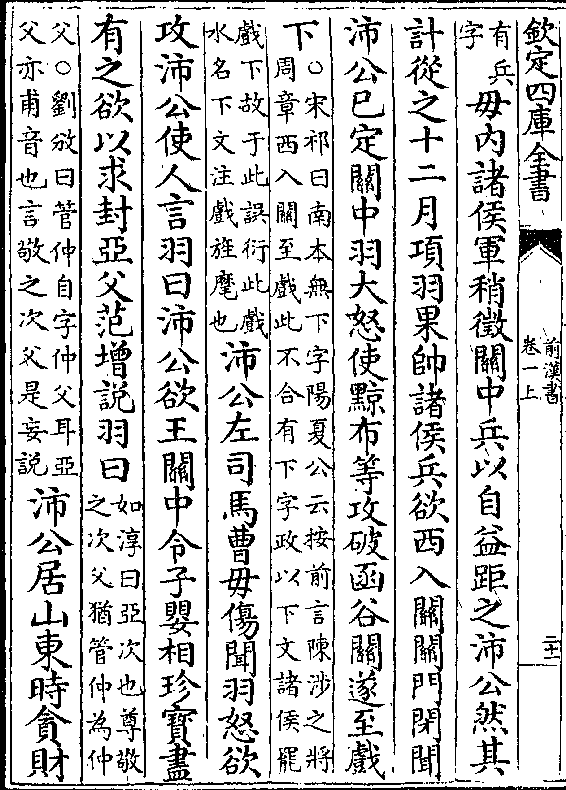 欽定四庫全書
前漢書
卷一上
二十一
有兵
字
毋內諸侯軍稍徵關中兵以自益距之沛公然其
計從之十二月項羽果帥諸侯兵欲西入關關門閉聞
沛公已定關中羽大怒使黥布等攻破函谷關遂至戲
下
○宋祁曰南本無下字陽夏公云按前言陳涉之將
周章西入關至戲此不合有下字政以下文諸侯罷
戲下故于此誤衍此戲
水名下文注戲旌麾也
沛公左司馬曹毋傷聞羽怒欲
攻沛公使人言羽曰沛公欲王關中令子嬰相珍寶盡
有之欲以求封亞父范增說羽曰
如淳曰亞次也尊敬
之次父猶管仲為仲
父○劉攽曰管仲自字仲父耳亞
父亦甫音也言敬之次父是妄説
沛公居山東時貪財